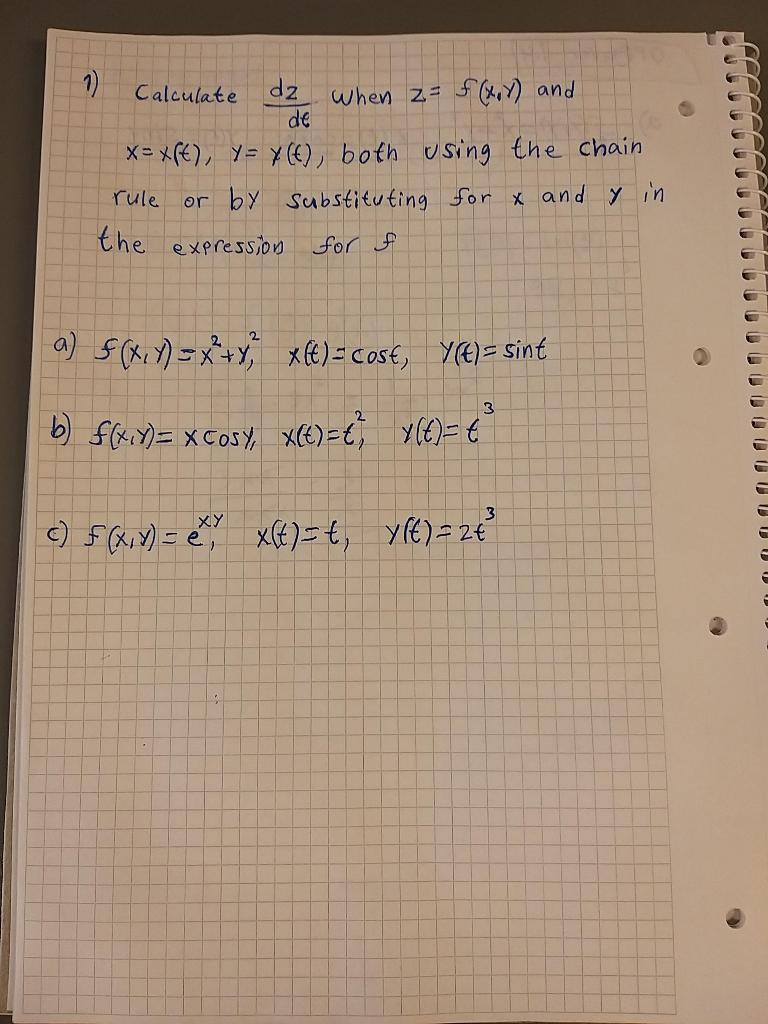 1) Calculate dz/dt when z= f(x,y) and
x=x(t), y= y(t), both using the chain
rule or by substituting for x and y in
the expression for f
a) f(x,y)=x²+y², x(t)=cost, y(t)=sint
b) f(x,y)= xcosy, x(t)=t², y(t)=t³
c) f(x,y)=e^xy, x(t)=t, y(t)=2t³